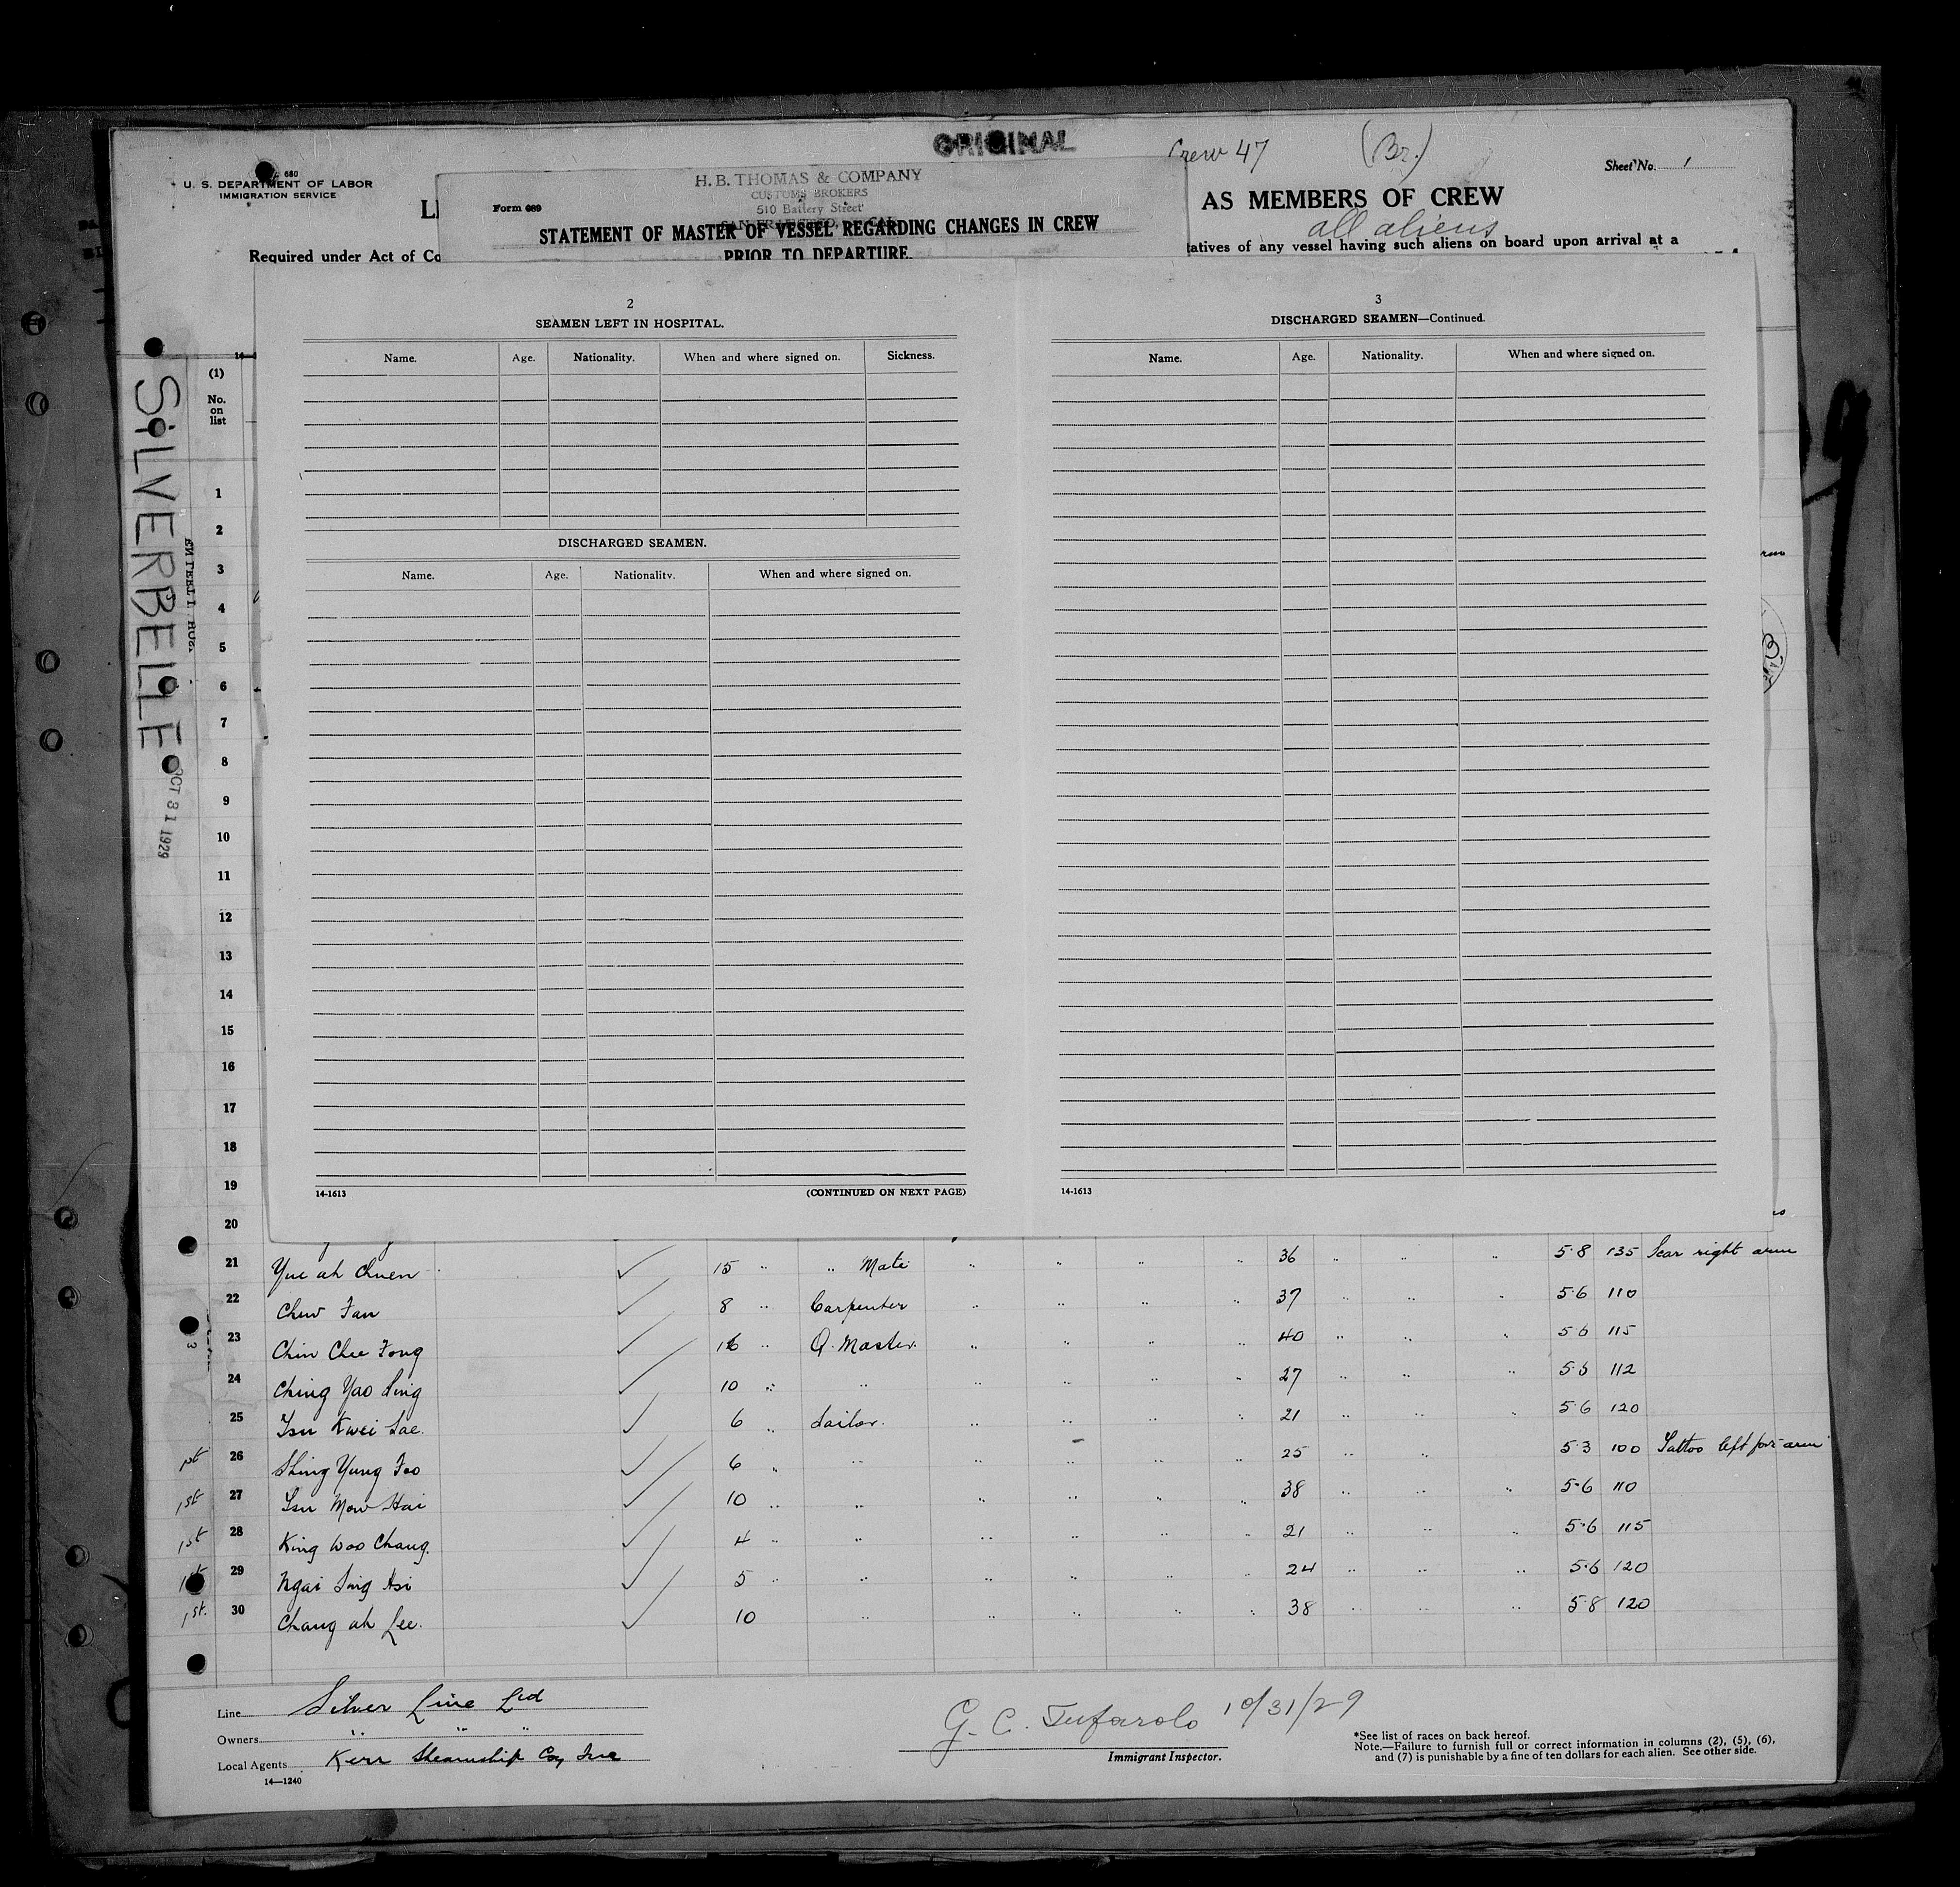 ORIGINAL
Crew 47 (Br.)
Sheet No. 1
680
U. S. DEPARTMENT OF LABOR
IMMIGRATION SERVICE
H. B. THOMAS & COMPANY
CUSTOMS BROKERS
510 Battery Street
SAN FRANCISCO, CAL.
Form 689
STATEMENT OF MASTER OF VESSEL REGARDING CHANGES IN CREW
PRIOR TO DEPARTURE.
AS MEMBERS OF CREW
all aliens
Required under Act of Co
tatives of any vessel having such aliens on board upon arrival at a
SILVERBELLE
OCT 31 1929
(1)
No.
on
list
2
SEAMEN LEFT IN HOSPITAL.
Name. Age. Nationality. When and where signed on. Sickness.
DISCHARGED SEAMEN.
Name. Age. Nationality. When and where signed on.
14-1613 (CONTINUED ON NEXT PAGE)
3
DISCHARGED SEAMEN—Continued.
Name. Age. Nationality. When and where signed on.
14-1613
1
2
3
4
5
6
7
8
9
10
11
12
13
14
15
16
17
18
19
20
21 Yue ah Chuen 15 " " Mate " " " " 36 " " " 5·8 135 Scar right arm
22 Chew Fan 8 " Carpenter " " " " 37 " " " 5·6 110
23 Chin Chee Fong 16 " Q. Master. " " " " 40 " " " 5·6 115
24 Ching Yao Sing 10 " " " " " " 27 " " " 5·5 112
25 Tsu Kwei Sae. 6 " Sailor. " " " " 21 " " " 5·6 120
1st 26 Shing Yung Foo 6 " " " " " " 25 " " 5·3 100 Tattoo left fore arm
1st 27 Tsu Mow Hai 10 " " " " " " 38 " " " 5·6 110
1st 28 King Woo Chang. 4 " " " " " " 21 " " " 5·6 115
1st 29 Ngai Sing Hsi 5 " " " " " " 24 " " " 5·6 120
1st. 30 Chang ah Lee. 10 " " " " " 38 " " " 5·8 120
Line Silver Line Ltd
Owners " " "
Local Agents Kerr Steamship Coy Inc
14—1240
G. C. Tufarolo 10/31/29
Immigrant Inspector.
*See list of races on back hereof.
Note.—Failure to furnish full or correct information in columns (2), (5), (6),
and (7) is punishable by a fine of ten dollars for each alien. See other side.